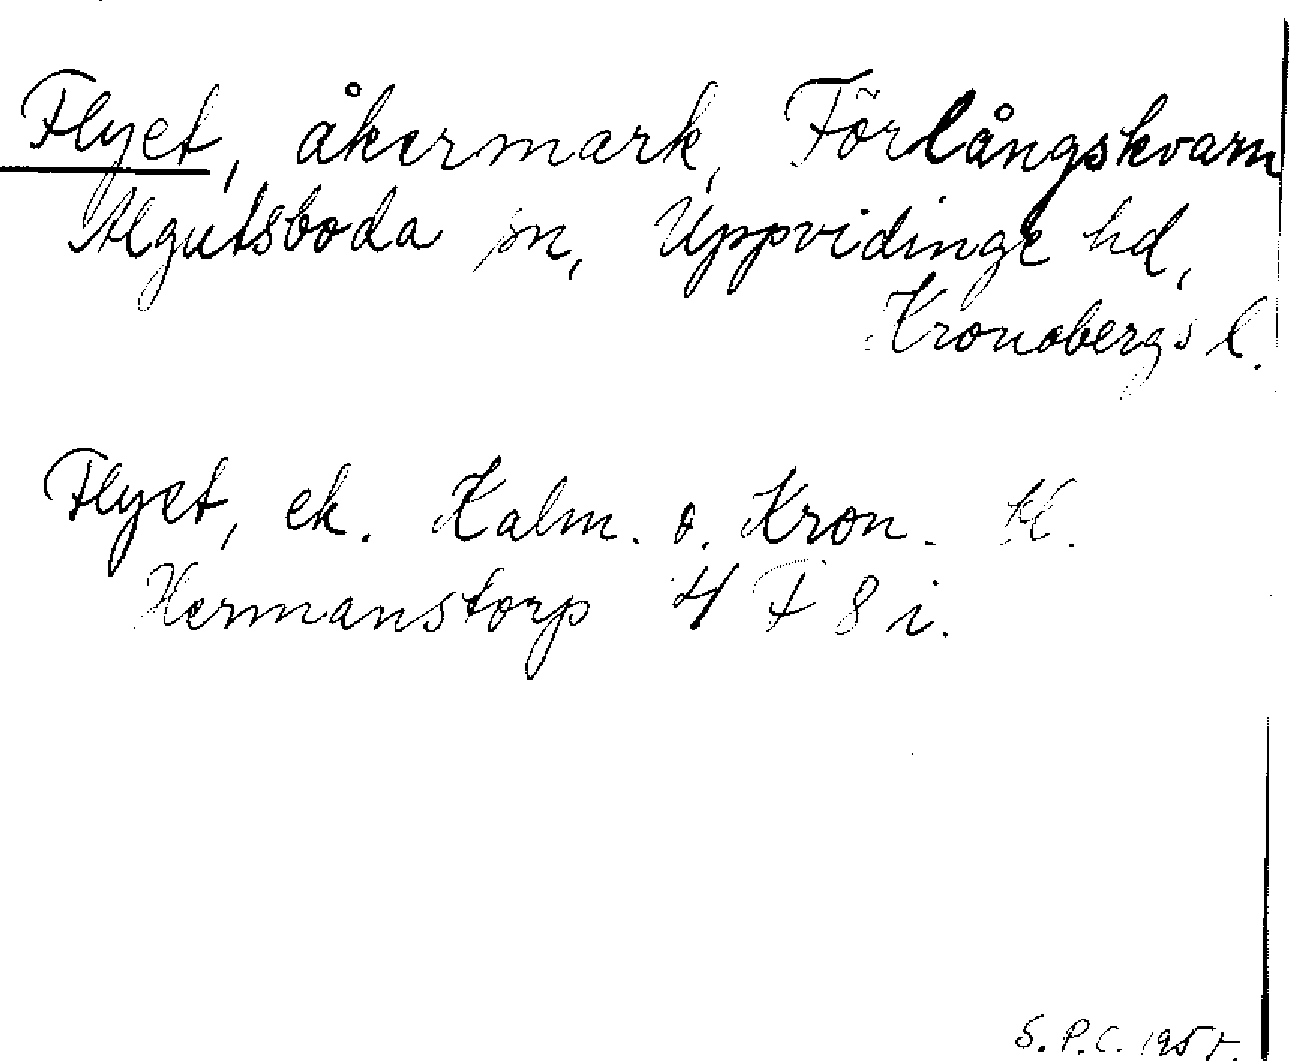 Flyet, åkermark, Förlångskvarn
Algutsboda sn, Uppvidinge hd,
Kronobergs l.
Flyet, ek. Kalm. o. Kron. kl.
Hermanstorp 4 F 8 i.
S. P. C. 1955.